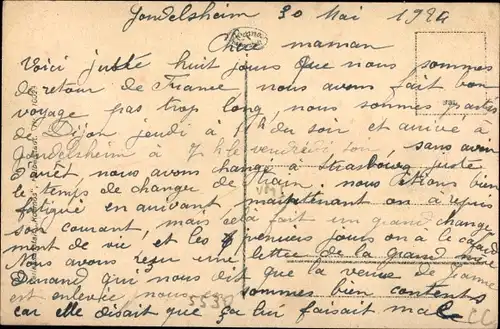 Gondelsheim 30 Mai 1924
Chère maman
Voici juste huit jours que nous sommes
de retour de France, nous avons fait bon
voyage pas trop long, nous sommes parties
de Dijon jeudi à du soir et arrivé à
Gondelsheim à 7 h vendredi soir, sans avoir
nous avons changé à Strasbourg juste
le temps de changer de train, nous étions bien
fatigué en arrivant, maintenant on a repris
son courant, mais cela fait un grand change
ment de vie et les premiers jours on a le cafard
Nous avons reçu une lettre de la grand mère
Durand qui nous dit que la veine de jambe
est enlevée, nous sommes bien contents
car elle disait que ça lui faisait mal
5530
CC